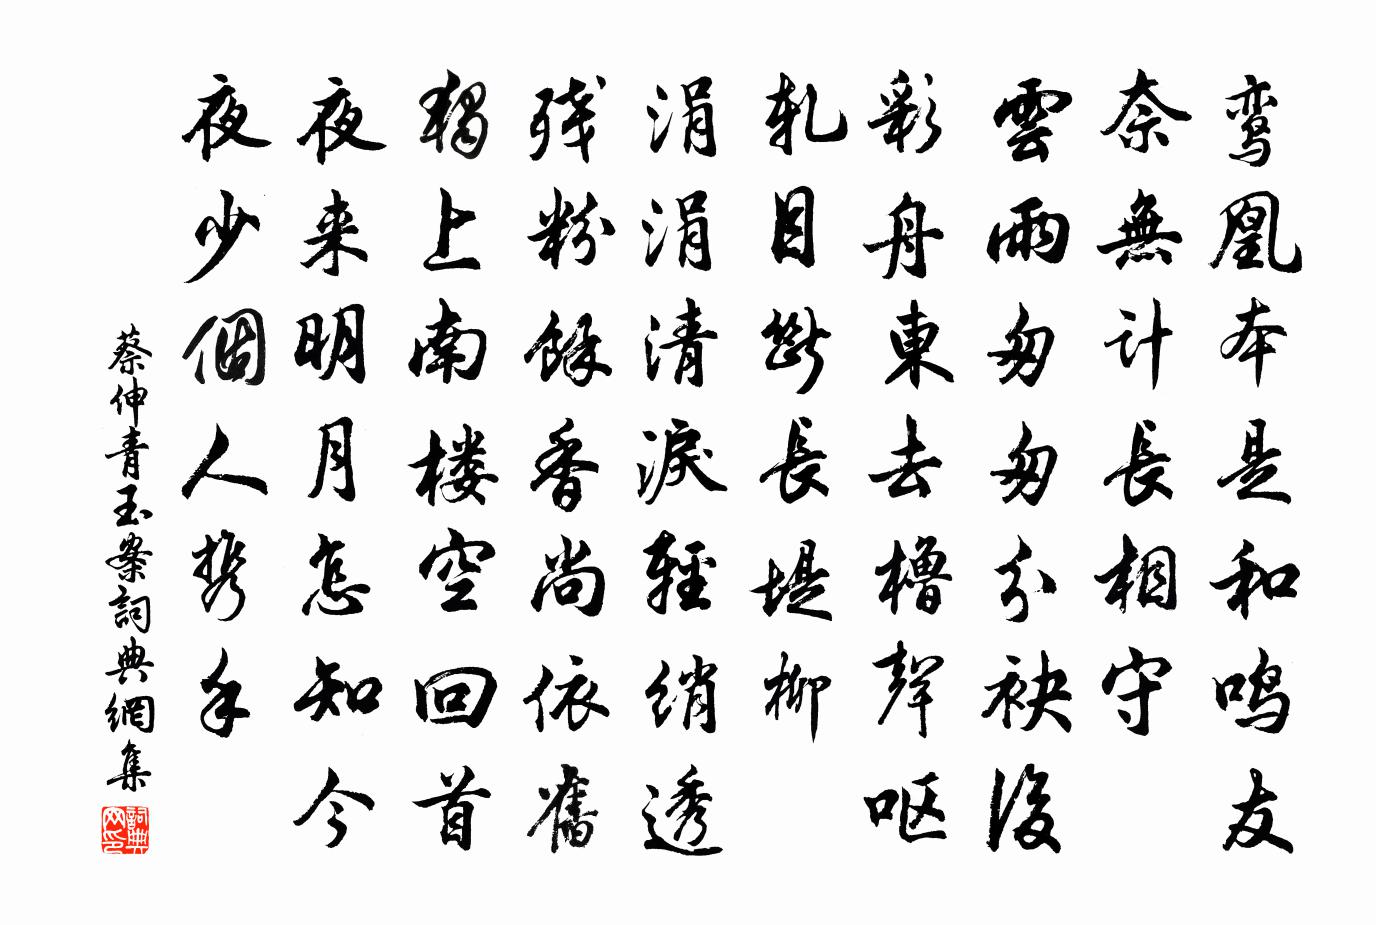 鸾凰本是和鸣友
奈無计長相守
雲雨匆匆分袂後
彩舟東去橹聲呕
轧目断長堤柳
涓涓清淚輕绡透
残粉餘香尚依舊
獨上南楼空回首
夜来明月怎知今
夜少個人携手
蔡伸青玉案詞典網集
詞典网印